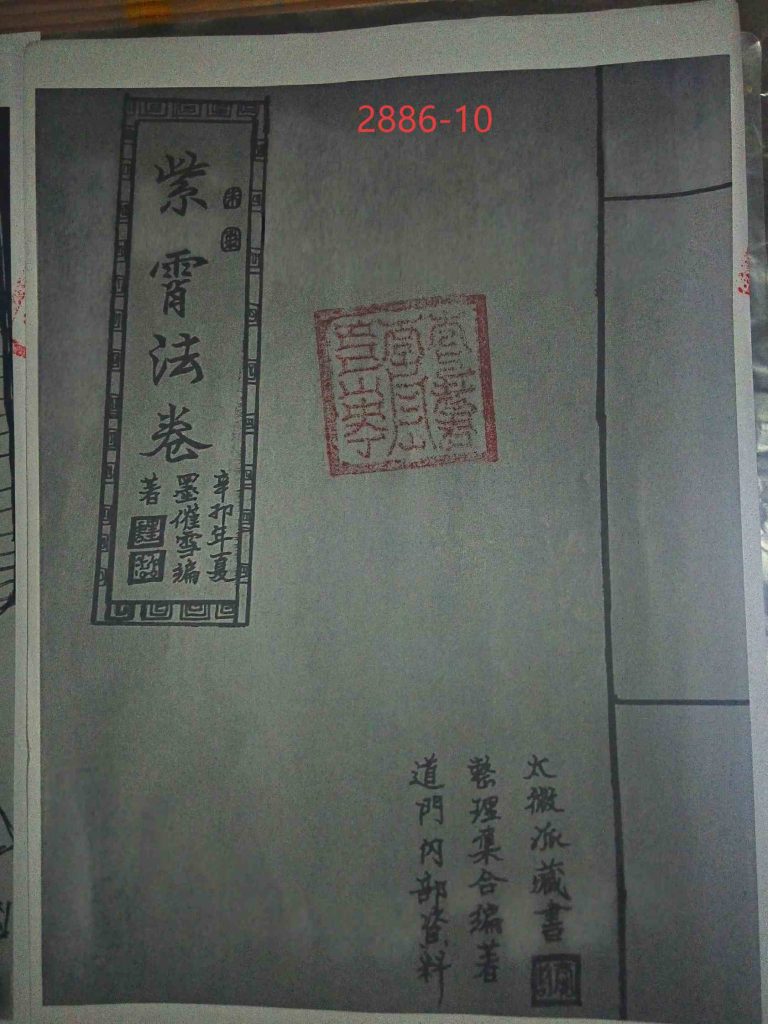 2886-10
紫霄法卷
辛卯年夏
墨催雪编
著
太微派藏書
整理集合编著
道門內部資料